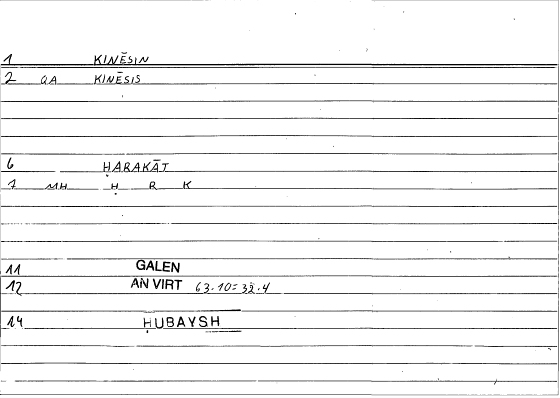 1 KINĒSIN
2 QA KINĒSIS
6 ḤARAKĀT
7 MH Ḥ R K
11 GALEN
12 AN VIRT 63.10=32.4
14 ḤUBAYSH